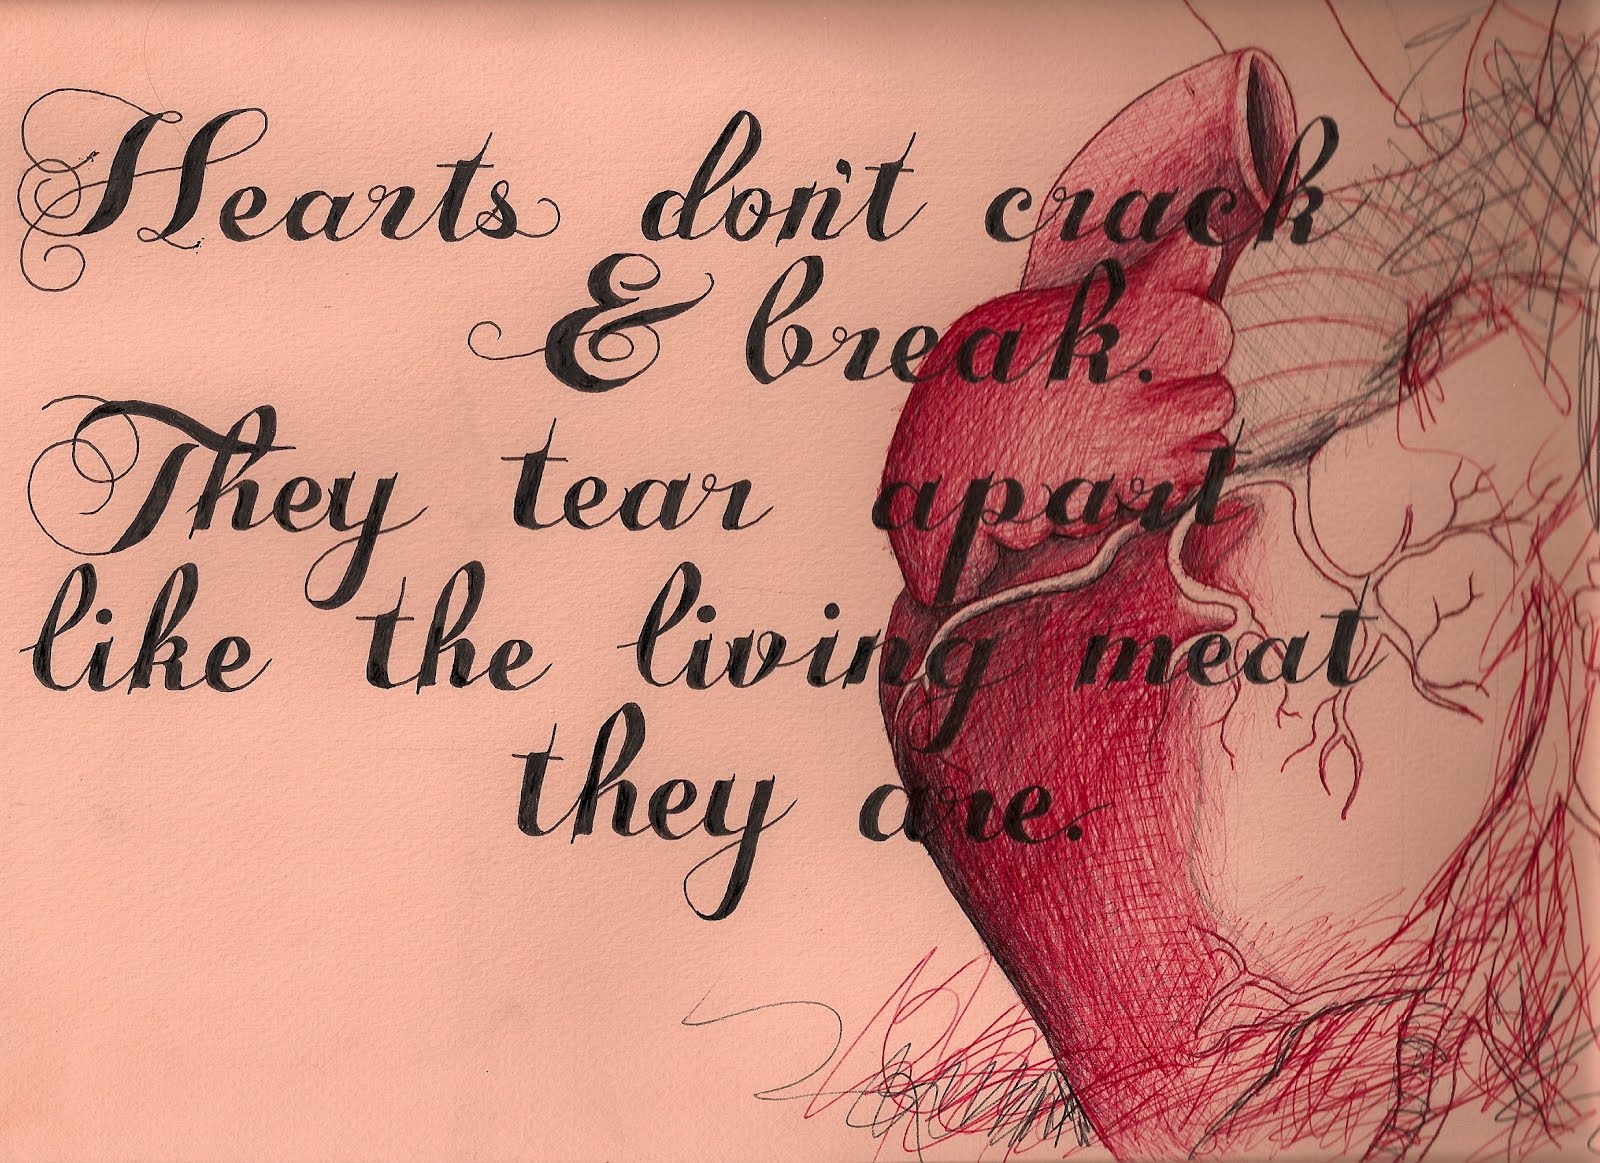 Hearts don't crack
& break.
They tear apart
like the living meat
they are.